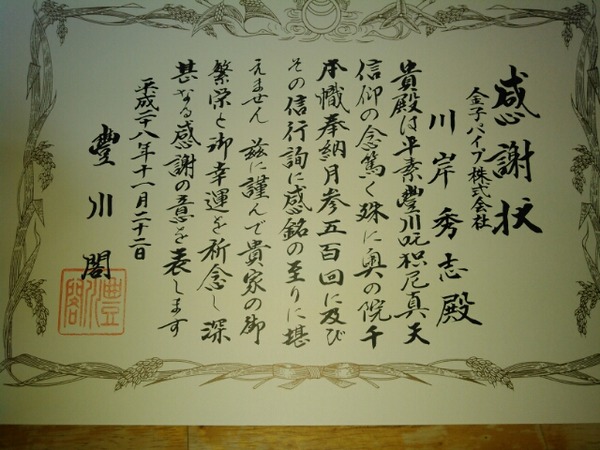 感謝状
金子パイプ株式会社
川岸秀志殿
貴殿は平素豊川吒枳尼真天
信仰の念篤く殊に奥の院千
本幟奉納月参五百回に及び
その信行詢に感銘の至りに堪
えません 茲に謹んで貴家の御
繁栄と御幸運を祈念し深
甚なる感謝の意を表します
平成二八年十一月二十二日
豊川閣
豊川閣